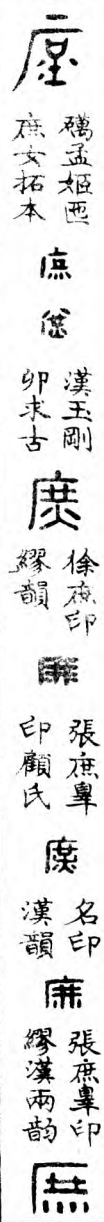 庶
礪孟姬匜
庶女拓本
庶
漢玉剛
卯求古
庶
徐庶印
繆韻
庶
張庶辠
印顧氏
庶
名印
漢韻
庶
張庶辠印
繆漢兩韵
庶